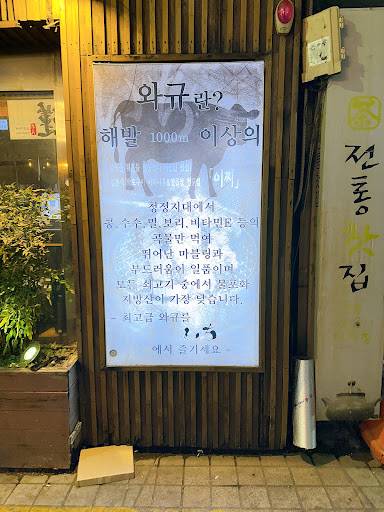 와규란?
해발 1000m 이상의
「이찌」
청정지대에서
콩, 수수, 밀, 보리, 비타민E 등의
곡물만 먹여
뛰어난 마블링과
부드러움이 일품이며
모든 쇠고기 중에서 불포화
지방산이 가장 낮습니다.
- 최고급 와규를
에서 즐기세요 -
茶
전통찻집